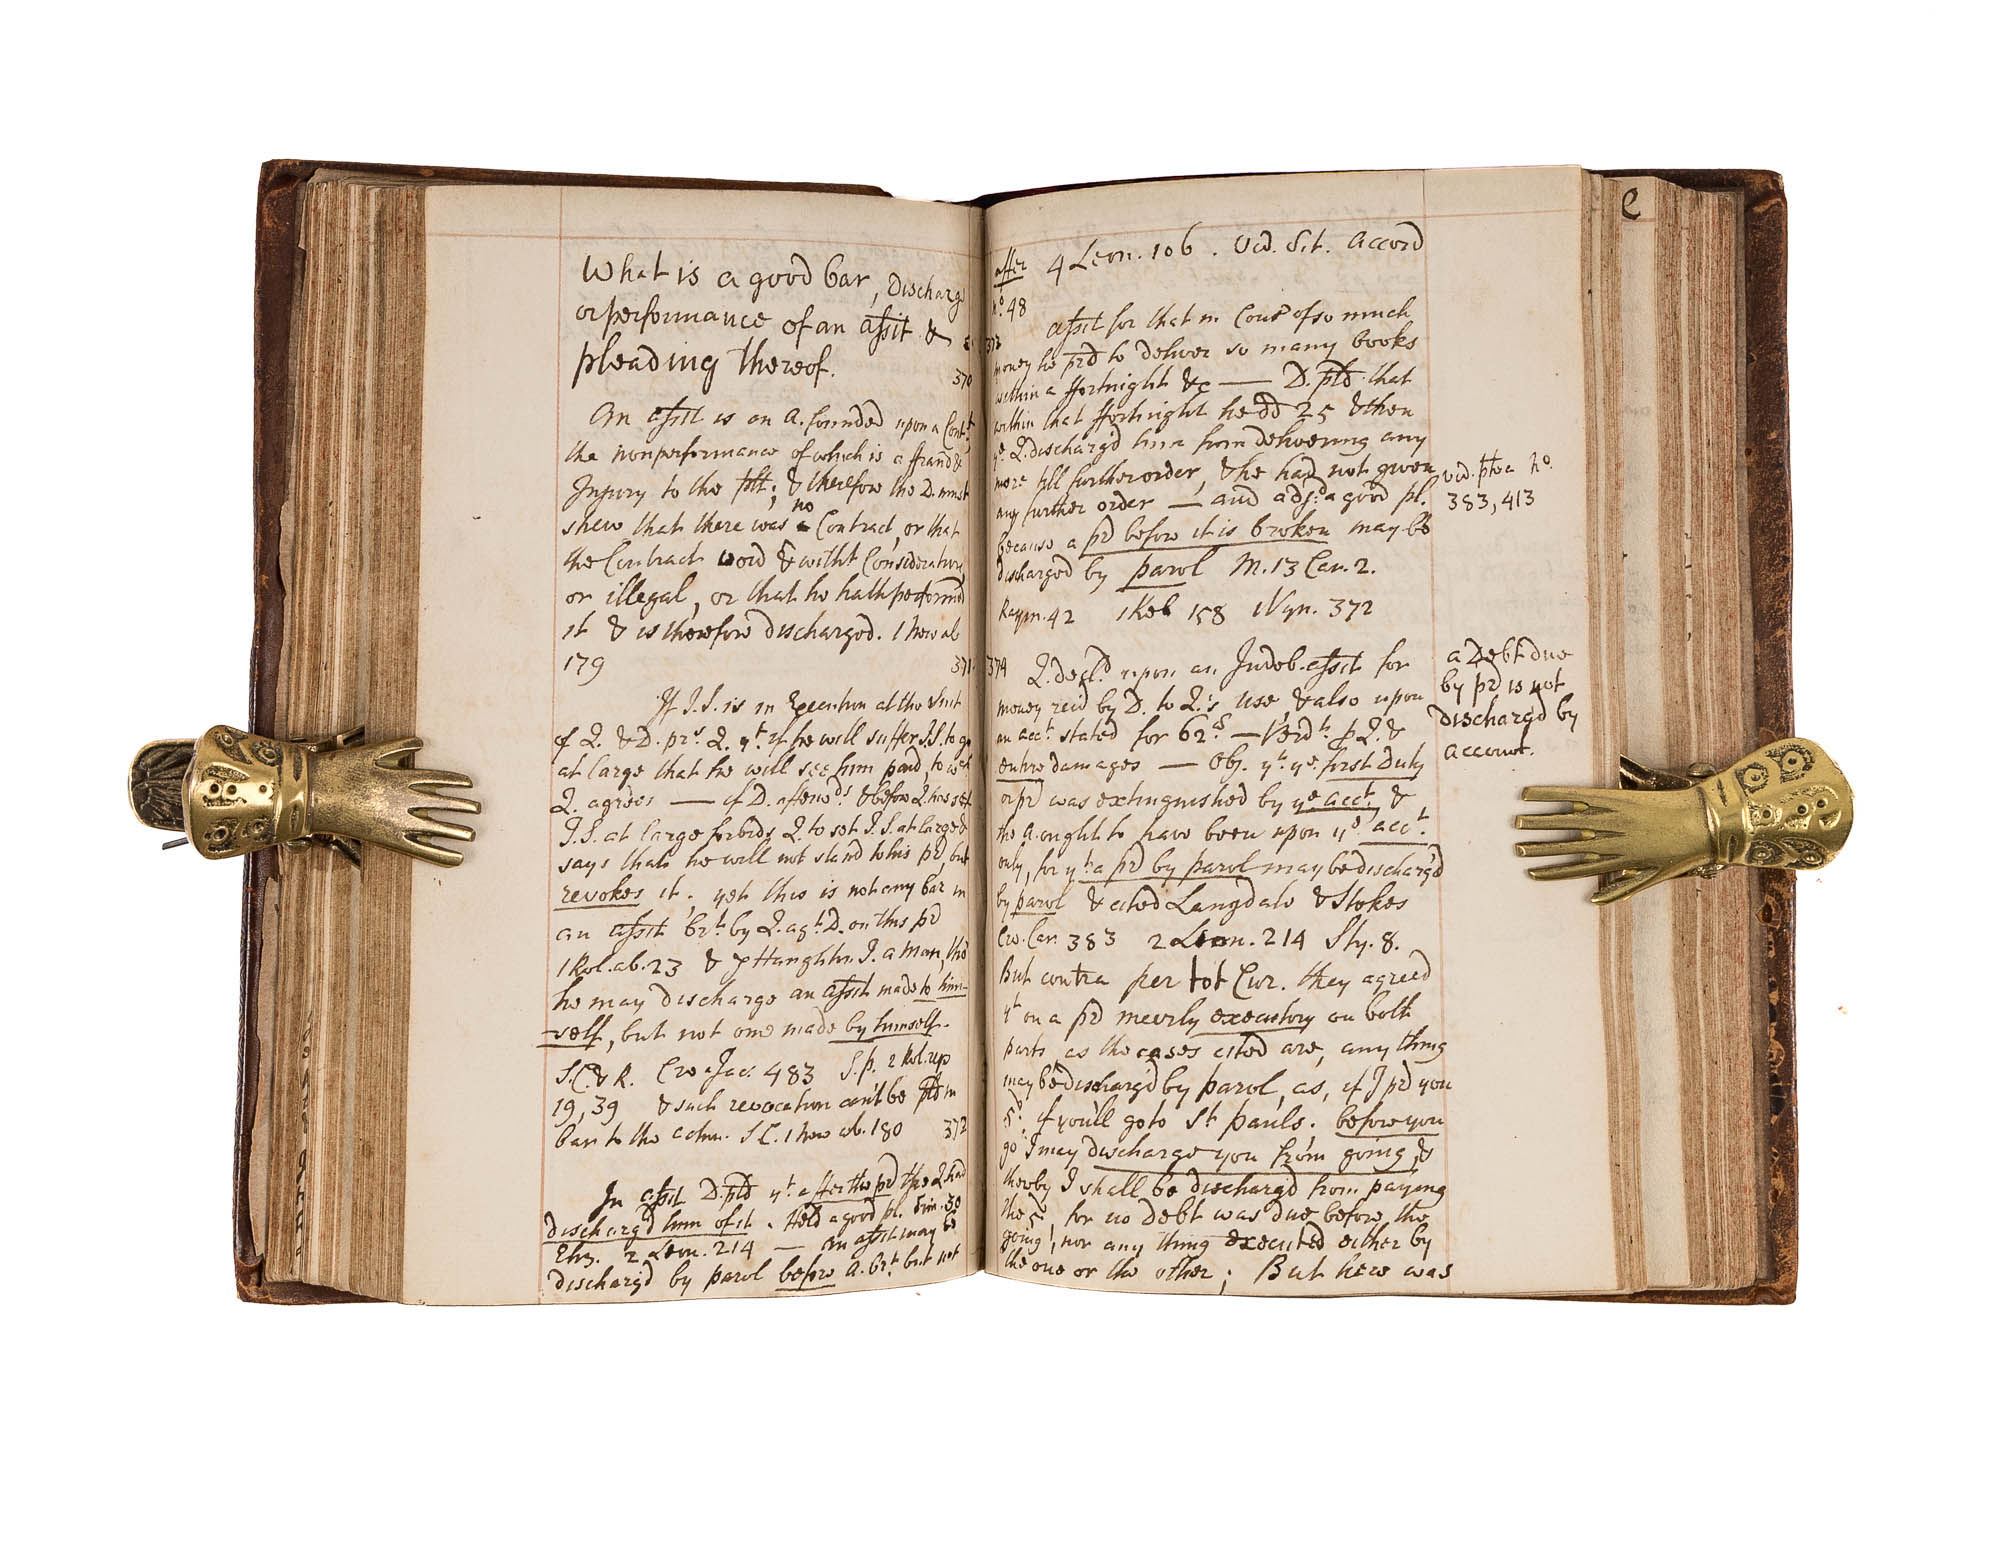 What is a good bar, Discharge
or performance of an assit &
pleading thereof. 370
An assit is an A. founded upon a Cont.t
the nonperformance of which is a ffraud &
Injury to the plt; & therefore the D. must
shew that there was no Contract, or that
the Contract void & witht Consideration
or illegal, or that he hath performed
it & is therefore discharged. 1 New ab
179 371.
If J.S. is in Execution at the Suit
of Q. & D. prs. Q. yt. if he will suffer J.S. to go
at large that he will see him paid, to wch
Q. agrees — if D. afterwds. & before Q. has set
J.S. at large forbids Q. to set J.S. at large &
says that he will not stand to his pd, but
revokes it. yet this is not any bar in
an assit brt. by Q. agt. D. on this pd
1 Rol. ab. 23 & p Haughton J. a man, tho
he may discharge an assit made to him-
self, but not one made by himself.
S.C. & R. Cro. Jac. 483 S.p. 2 Rol. rep
19, 39 & such revocation can't be pld in
bar to the actn. S.C. 1 New ab. 180 372
In assit D. pld yt. after the pd the Q. had
discharg'd him of it. Held a good pl. 30
Eliz. 2 Leon. 214 — an assit may be
discharg'd by parol before A. brt. but not
after 4 Leon. 106. Vid. Sit. Accord
no. 48
373 assit for that in Cons. of so much
money he prd to deliver so many books
within a ffortnight &c — D. pld that
within that ffortnight he dd 25 & then
ye. Q. discharg'd him from delivering any
more till further order, & he had not given
any further order — and adjd. a good pl.
because a pd before it is broken may be
discharged by parol M. 13 Car. 2.
Raym. 42 1 Keb 158 1 Vyn. 372
vid. ptea no.
383, 413
374 Q. decld. upon an Indeb. assit for
money reid by D. to Q.'s use, & also upon
an acct. stated for 62s — Verdt. p Q. &
entire damages — Obj. yt. ye. first Duty
or pd was extinguished by ye. acct. &
the A. ought to have been upon ye. acct.
only, for yt. a pd by parol may be discharg'd
by parol & cited Langdale & Stokes
Cro. Car. 383 2 Leon. 214 Sty. 8.
But contra per tot Cur. they agreed
yt on a pd meerly executory on both
parts, as the cases cited are, any thing
may be discharg'd by parol, as, if I pd you
5s. if you'll go to St Pauls. before you
go I may discharge you from going, &
thereby I shall be discharg'd from paying
the 5s, for no Debt was due before the
going, nor any thing executed either by
the one or the other; But here was
a Debt due
by pd is not
discharg'd by
account.
e